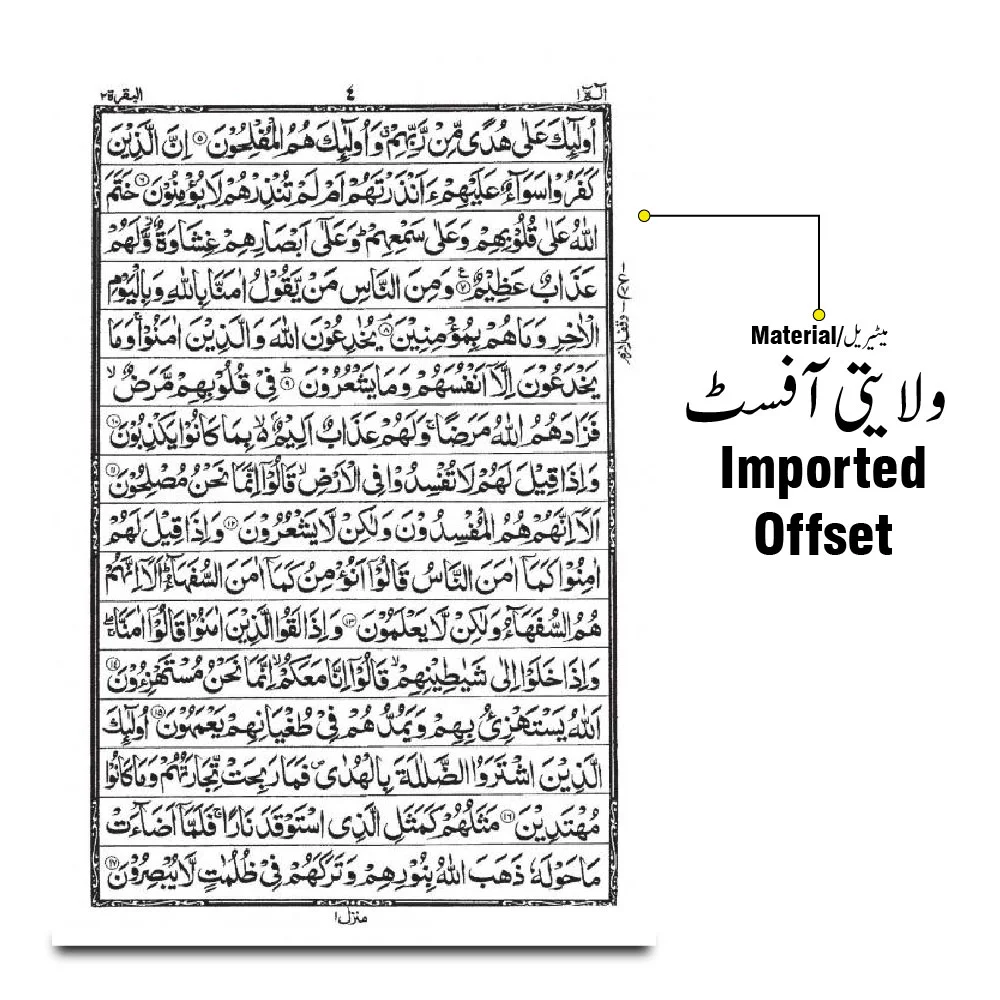 الٓمّٓ ١
٤
البقرة ٢
اُولٰٓئِكَ عَلٰى هُدًى مِّنْ رَّبِّهِمْ ۗ وَاُولٰٓئِكَ هُمُ الْمُفْلِحُوْنَ ۝٥ اِنَّ الَّذِيْنَ
كَفَرُوْا سَوَآءٌ عَلَيْهِمْ ءَاَنْذَرْتَهُمْ اَمْ لَمْ تُنْذِرْهُمْ لَا يُؤْمِنُوْنَ ۝٦ خَتَمَ
اللّٰهُ عَلٰى قُلُوْبِهِمْ وَعَلٰى سَمْعِهِمْ ؕ وَعَلٰٓى اَبْصَارِهِمْ غِشَاوَةٌ ؗ وَّلَهُمْ
عَذَابٌ عَظِيْمٌ ۝٧ وَمِنَ النَّاسِ مَنْ يَّقُوْلُ اٰمَنَّا بِاللّٰهِ وَبِالْيَوْمِ
الْاٰخِرِ وَمَا هُمْ بِمُؤْمِنِيْنَ ۝٨ يُخٰدِعُوْنَ اللّٰهَ وَالَّذِيْنَ اٰمَنُوْا ۚ وَمَا
يَخْدَعُوْنَ اِلَّاۤ اَنْفُسَهُمْ وَمَا يَشْعُرُوْنَ ۝٩ؕ فِيْ قُلُوْبِهِمْ مَّرَضٌ ۙ
فَزَادَهُمُ اللّٰهُ مَرَضًا ۚ وَلَهُمْ عَذَابٌ اَلِيْمٌ ۙ۬ بِمَا كَانُوْا يَكْذِبُوْنَ ۝١٠
وَاِذَا قِيْلَ لَهُمْ لَا تُفْسِدُوْا فِى الْاَرْضِ ۙ قَالُوْۤا اِنَّمَا نَحْنُ مُصْلِحُوْنَ ۝١١
اَلَاۤ اِنَّهُمْ هُمُ الْمُفْسِدُوْنَ وَلٰكِنْ لَّا يَشْعُرُوْنَ ۝١٢ وَاِذَا قِيْلَ لَهُمْ
اٰمِنُوْا كَمَاۤ اٰمَنَ النَّاسُ قَالُوْۤا اَنُؤْمِنُ كَمَاۤ اٰمَنَ السُّفَهَآءُ ؕ اَلَاۤ اِنَّهُمْ
هُمُ السُّفَهَآءُ وَلٰكِنْ لَّا يَعْلَمُوْنَ ۝١٣ وَاِذَا لَقُوا الَّذِيْنَ اٰمَنُوْا قَالُوْۤا اٰمَنَّا ۖۚ
وَاِذَا خَلَوْا اِلٰى شَيٰطِيْنِهِمْ ۙ قَالُوْۤا اِنَّا مَعَكُمْ ۙ اِنَّمَا نَحْنُ مُسْتَهْزِءُوْنَ ۝١٤
اَللّٰهُ يَسْتَهْزِئُ بِهِمْ وَيَمُدُّهُمْ فِيْ طُغْيَانِهِمْ يَعْمَهُوْنَ ۝١٥ اُولٰٓئِكَ
الَّذِيْنَ اشْتَرَوُا الضَّلٰلَةَ بِالْهُدٰى ۪ فَمَا رَبِحَتْ تِّجَارَتُهُمْ وَمَا كَانُوْا
مُهْتَدِيْنَ ۝١٦ مَثَلُهُمْ كَمَثَلِ الَّذِى اسْتَوْقَدَ نَارًا ۚ فَلَمَّاۤ اَضَآءَتْ
مَا حَوْلَهٗ ذَهَبَ اللّٰهُ بِنُوْرِهِمْ وَتَرَكَهُمْ فِيْ ظُلُمٰتٍ لَّا يُبْصِرُوْنَ ۝١٧
منزل ١
Material/میٹیریل
ولایتی آفسٹ
Imported
Offset